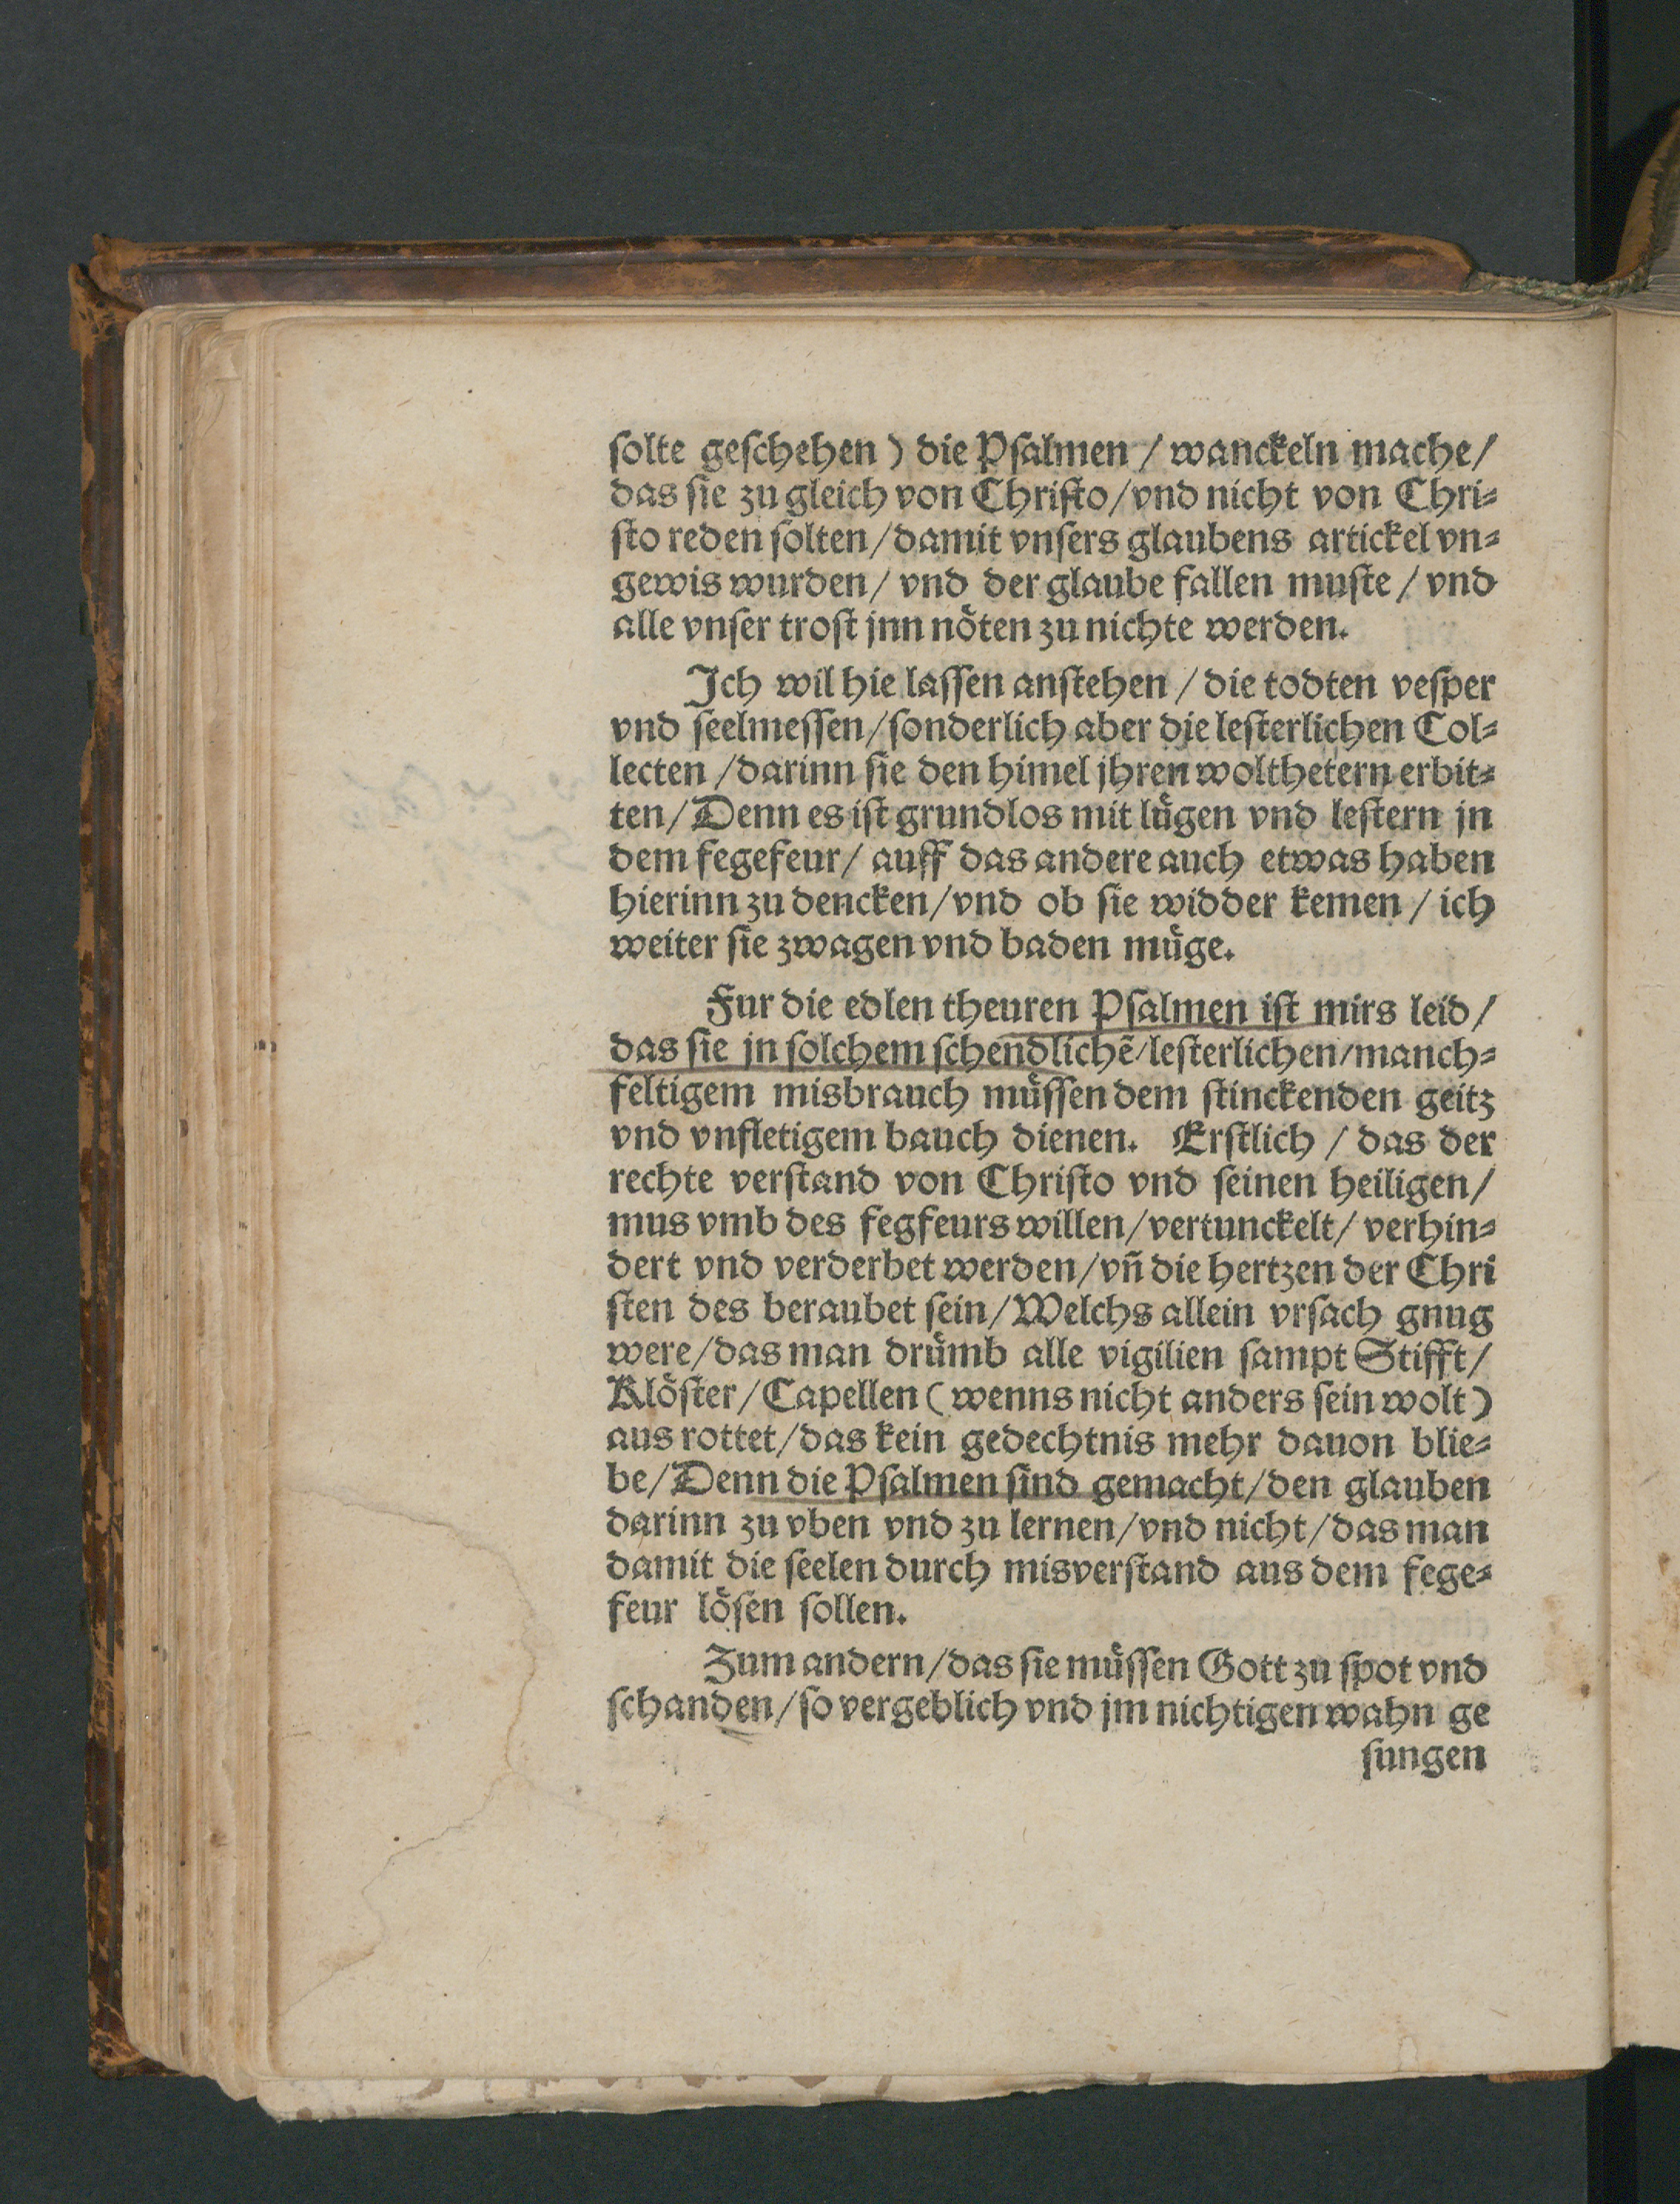 ſolte geſchehen) die Pſalmen / wanckeln mache/
das ſie zu gleich von Chriſto/vnd nicht von Chri⸗
ſto reden ſolten/damit vnſers glaubens artickel vn⸗
gewis wurden/ vnd der glaube fallen muſte / vnd
alle vnſer troſt jnn nöten zu nichte werden.
Ich wil hie laſſen anſtehen / die todten veſper
vnd ſeelmeſſen/ſonderlich aber die leſterlichen Col⸗
lecten /darinn ſie den himel jhren wolthetern erbit⸗
ten/Denn es iſt grundlos mit lügen vnd leſtern jn
dem fegefeur/ auff das andere auch etwas haben
hierinn zu dencken/vnd ob ſie widder kemen / ich
weiter ſie zwagen vnd baden müge.
Fur die edlen theuren Pſalmen iſt mirs leid/
das ſie jn ſolchem ſchendlichē/leſterlichen/manch⸗
feltigem misbrauch müſſen dem ſtinckenden geitz
vnd vnfletigem bauch dienen. Erſtlich / das der
rechte verſtand von Chriſto vnd ſeinen heiligen/
mus vmb des fegfeurs willen/vertunckelt/ verhin⸗
dert vnd verderbet werden/vñ die hertzen der Chri
ſten des beraubet ſein/Welchs allein vrſach gnug
were/das man drümb alle vigilien ſampt Stifft/
Klöſter/Capellen (wenns nicht anders ſein wolt)
aus rottet/das kein gedechtnis mehr dauon blie⸗
be/Denn die Pſalmen ſind gemacht/den glauben
darinn zu vben vnd zu lernen/vnd nicht/das man
damit die ſeelen durch misverſtand aus dem fege⸗
feur löſen ſollen.
Zum andern/das ſie müſſen Gott zu ſpot vnd
ſchanden/ſo vergeblich vnd jm nichtigen wahn ge
ſungen